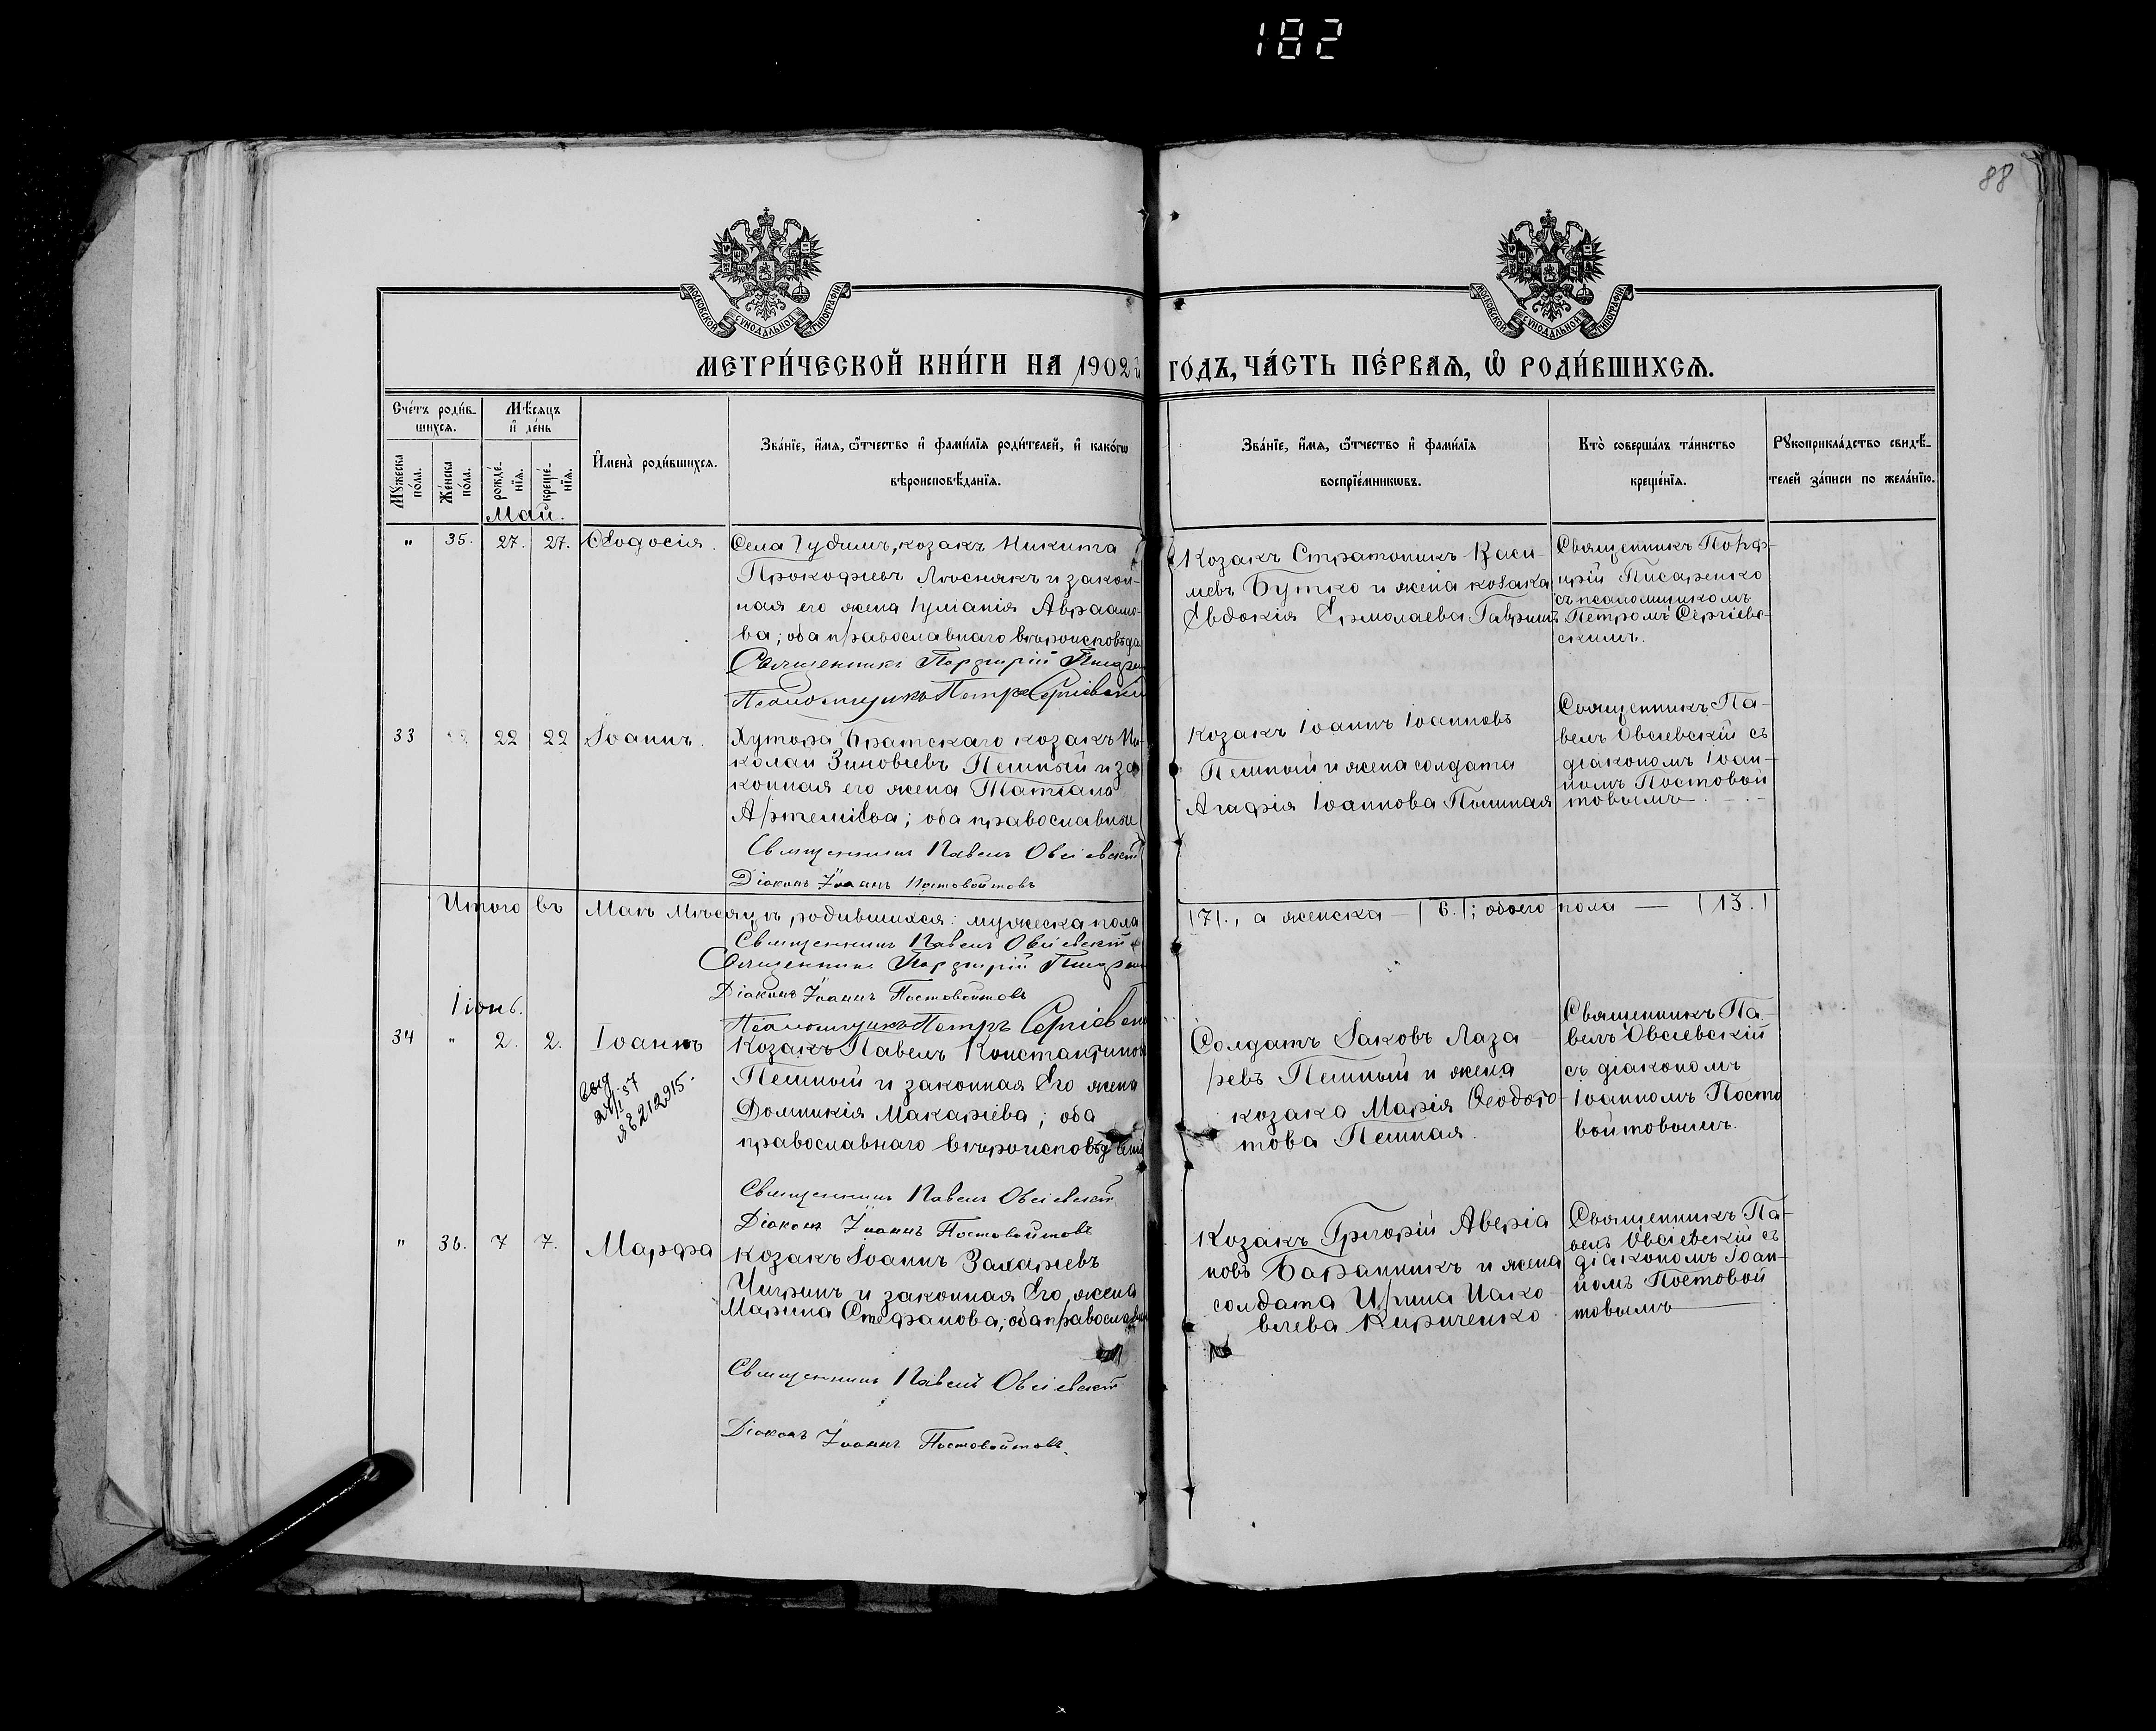 182
88
МОСКОВСКОЙ СѴНОДАЛЬНОЙ ТИПОГРАФІИ
МОСКОВСКОЙ СѴНОДАЛЬНОЙ ТИПОГРАФІИ
МЕТРИ́ЧЕСКОЙ КНИ́ГИ НА 1902 й ГО́ДЪ, ЧА́СТЬ ПЕ́РВАѦ, Ѡ РОДИ́ВШИХСѦ.
Сче́тъ роди́в-
шихсѧ.
Мꙋжеска по́ла.
Же́нска по́ла.
Мѣ́сѧцъ
и҆ де́нь
рожде́-
нїѧ.
креще́-
нїѧ.
И҆мена̀ роди́вшихсѧ.
Зва́нїе, и҆́мѧ, ѻ҆́тчество и҆ фами́лїѧ роди́телей, и҆ како́гѡ
вѣроисповѣ́данїѧ.
Зва́нїе, и҆́мѧ, ѻ҆́тчество и҆ фами́лїѧ
воспрїе́мникѡвъ.
Кто̀ соверша́лъ та́инство
креще́нїѧ.
Рꙋкоприкла́дство свидѣ́-
телей за́писи по жела́нїю.
Май.
" 35. 27. 27. Ѳеодосія.
Села Гудимъ, козакъ Никита
Прокофіевъ Лѣснякъ и закон-
ная его жена Іуліанія Авраамо-
ва; оба православнаго вѣроисповѣда
Священникъ Порфирій
Псаломщикъ Петръ Сергіевскій
Козакъ Стратоникъ Васи-
лиевъ Бутко и жена козака
Евдокія Ермолаева
Священникъ Порф-
ирій Писаренко
съ псаломщикомъ
Петромъ Сергіевс-
скимъ.
33 22 22 Іоаннъ.
Хутора Братскаго козакъ Ни-
колай Зиновіевъ Пешный и за
конная его жена Татіана
Артеміева; оба православные
Священникъ Павелъ Овсіевскій
Діаконъ Іоаннъ Постовойтовъ
Козакъ Іоаннъ Іоанновъ
Пешный и жена солдата
Агафія Іоаннова Пешная
Священникъ Па-
велъ Овсіевскій съ
діакономъ Іоан-
номъ Постовой
товымъ
Итого въ Маѣ Мѣсяцѣ, родившихся: мужеска пола |7|., а женска — |6.|; обоего пола — |13.|
Священникъ Павелъ Овсіевскій
Священникъ Порфирій
Діаконъ Іоаннъ Постовойтовъ
Псаломщикъ Петръ Сергіевскій
Іюнь.
34 " 2. 2. Іоаннъ
57
212915.
Козакъ Павелъ Константинов
Пешный и законная Его жена
Домникія Макаріева; оба
православнаго вѣроисповѣдані
Священникъ Павелъ Овсіевскій
Діаконъ Іоаннъ Постовойтовъ
Солдатъ Іаковъ Лаза
ревъ Пешный и жена
козака Марія Ѳеодо-
това Пешная.
Священникъ Па-
велъ Овсіевскій
съ діакономъ
Іоанномъ Посто
войтовымъ.
" 36. 7 7. Марфа
Козакъ Іоаннъ Захаріевъ
Чигринъ и законная Его жена
Марина Стефанова; оба православн
Священникъ Павелъ Овсіевскій
Діаконъ Іоаннъ Постовойтовъ.
Козакъ Григорій Аверіа
новъ Баранникъ и жена
солдата Ирина Иако
влева Кириченко
Священникъ Па-
велъ Овсіевскій съ
діакономъ Іоан-
номъ Постовой
товымъ